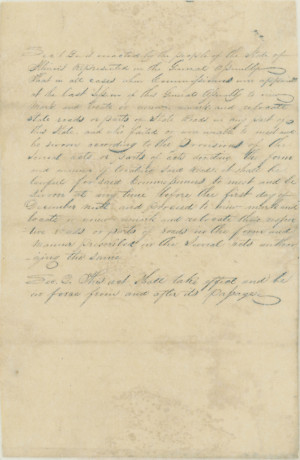 Sec 1 Be it enacted by the people of the State of
Illinois represented in the General Assembly
that in all cases when Commissioners were appointed
at the last Session of this General Assembly to view
mark and locate or review mark and relocate
State roads or parts of State Roads in any part of
this State and who failed or were unable to meet and
be sworn according to the Provisions of the
Several acts or parts of acts
and manner of said Road, it shall be
lawful for said Commissioners to meet and be
Sworn at any time before the first day of
December next and proceed to view mark and
locate or review mark and relocate their respec
tive roads or parts of roads in the form and
manner prescribed in the Several acts
the same
Sec. 2. This act shall take effect and be
in force from and after its passage